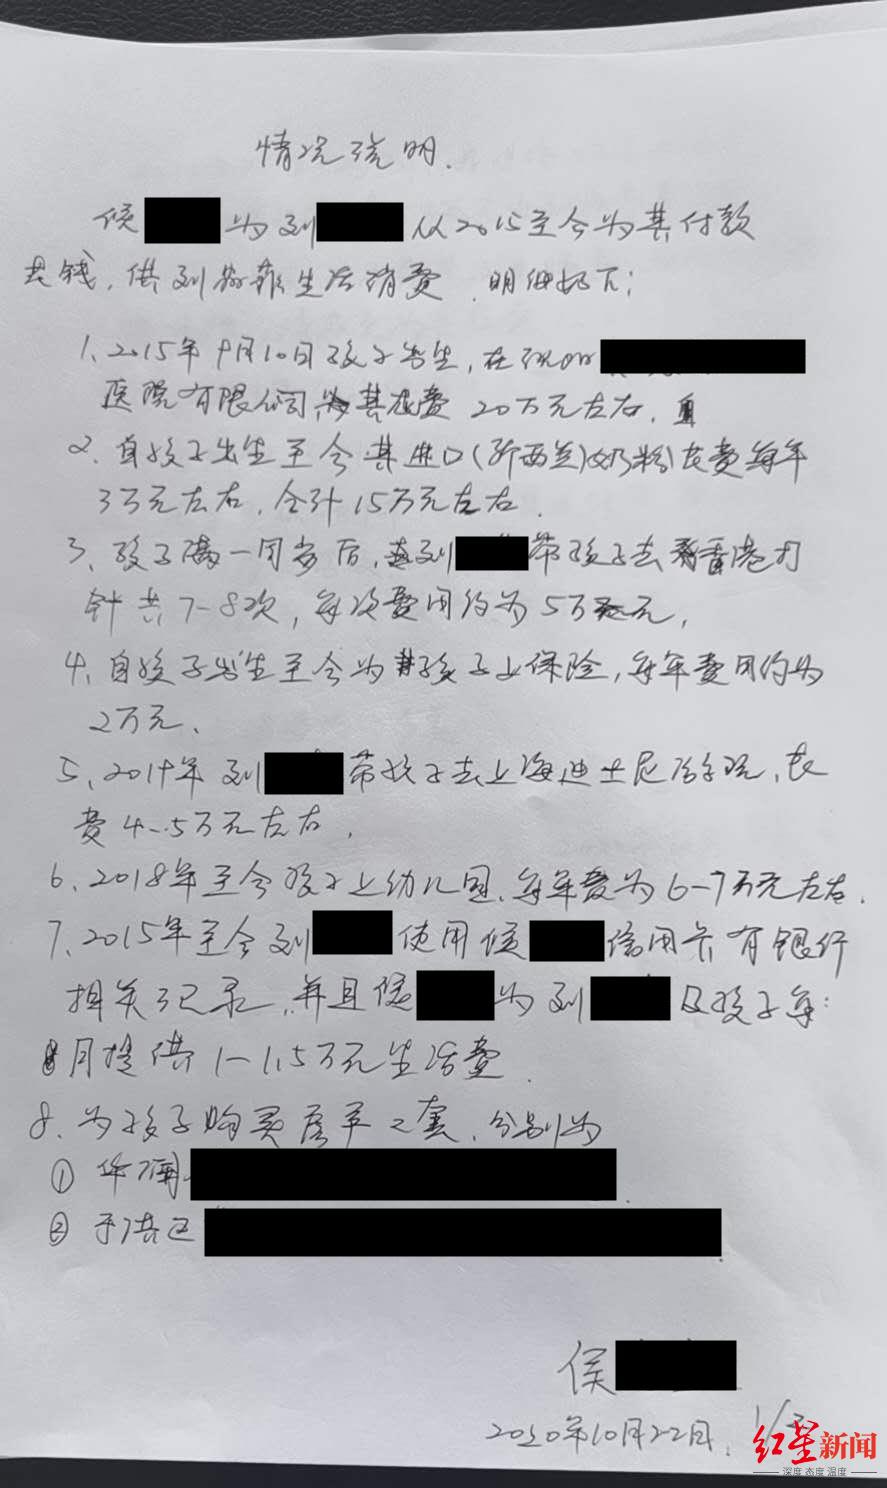 情况说明.
侯 为刘 从2015至今为其付款
花钱,供刘 生活消费.明细如下:
1、2015年9月10日孩子出生,在沈阳
医院有限公司 为其花费20万元左右.
2、自孩子出生至今其进口(新西兰)奶粉花费每年
3万元左右,合计15万元左右.
3、孩子满一周岁后, 刘 带孩子去香港打
针共7-8次,每次费用约为5万元,
4、自孩子出生至今为孩子上保险,每年费用约为
2万元、
5、2019年刘 带孩子去上海迪士尼 ,花
费4-5万元左右,
6、2018年至今孩子上幼儿园、每年费为6-7万元左右.
7、2015年至今刘 使用侯 信用卡有银行
相关记录,并且侯 为刘 及孩子每
月提供1-1.5万元生活费.
8、为孩子购买房子二套,分别为
① 华润
② 于洪区
侯
2020年10月22日. 1/2
红星新闻
深度 态度 温度